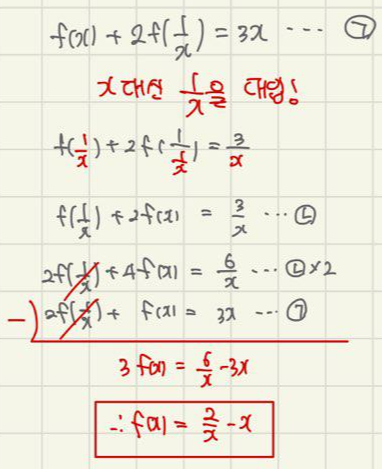 f(x) + 2f(1/x) = 3x ··· ㉠
x 대신 1/x을 대입!
f(1/x) + 2f(1/(1/x)) = 3/x
f(1/x) + 2f(x) = 3/x ··· ㉡
2f(1/x) + 4f(x) = 6/x ··· ㉡×2
-) 2f(1/x) + f(x) = 3x ··· ㉠
3f(x) = 6/x - 3x
∴ f(x) = 2/x - x